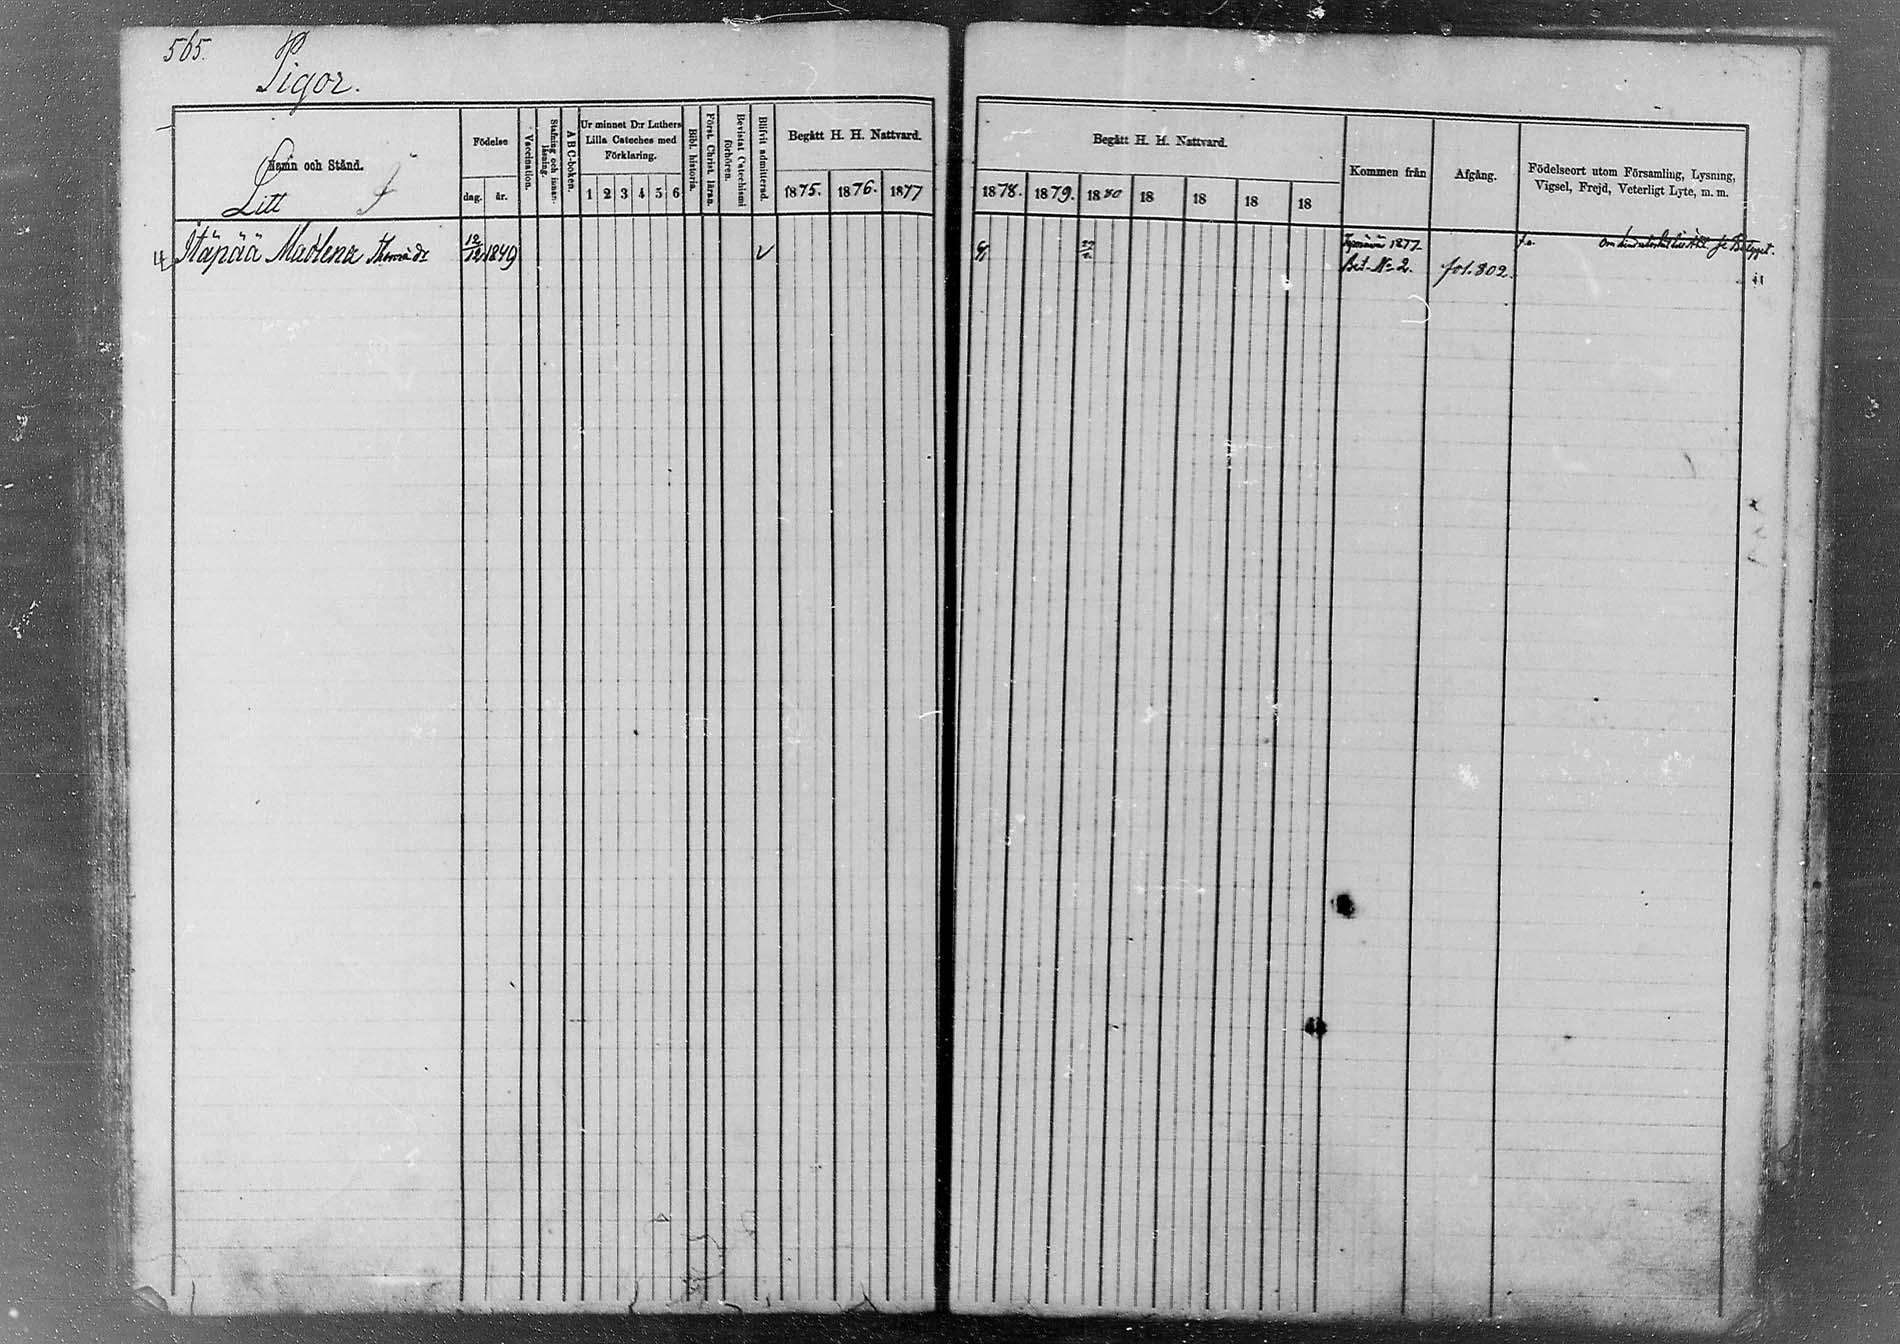 565.
Pigor.
Namn och Stånd.
Litt I
Födelse
dag. år.
Vaccination.
Stafning och innanläsning.
A B C-boken.
Ur minnet D:r Luthers
Lilla Cateches med
Förklaring.
1 2 3 4 5 6
Bibl. historia.
Först. Christ. läran.
Bevistat Catechismi förhören.
Blifvit admitterad.
Begått H. H. Nattvard.
1875. 1876. 1877
Begått H. H. Nattvard.
1878. 1879. 1880 18 18 18 18
Kommen från
Afgång.
Födelseort utom Församling, Lysning,
Vigsel, Frejd, Veterligt Lyte, m. m.
Itäpää Madlena 12/12 1849 Tyrnävä 1877
Bet. No 2. fol. 802.